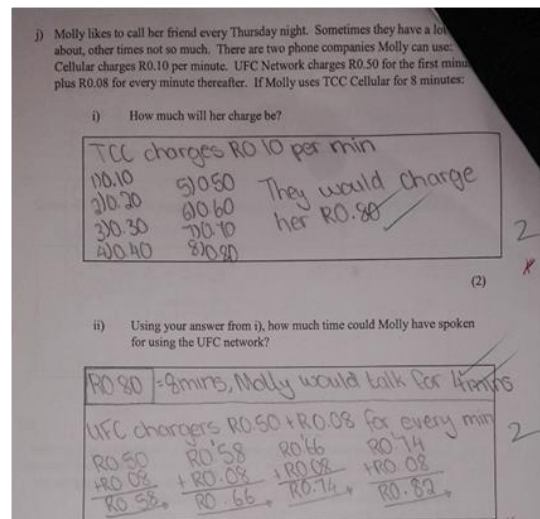 j) Molly likes to call her friend every Thursday night. Sometimes they have a lot
about, other times not so much. There are two phone companies Molly can use:
Cellular charges R0.10 per minute. UFC Network charges R0.50 for the first minu
plus R0.08 for every minute thereafter. If Molly uses TCC Cellular for 8 minutes:
i) How much will her charge be?
TCC charges R0 10 per min
1)0.10 5)050 They would charge
2)0.20 6)0 60 her R0.80
3)0.30 7)0.70
4)0.40 8)0.80
2
(2)
ii) Using your answer from i), how much time could Molly have spoken
for using the UFC network?
R0 80 = 8mins, Molly would talk for 4mins
UFC chargers R0.50 + R0.08 for every min
2
R0 50 R0'58 R0'66 R0'74
+R0 08 + R0.08 +R0 08 +R0 08
R0 58 R0.66 R0.74 R0.82